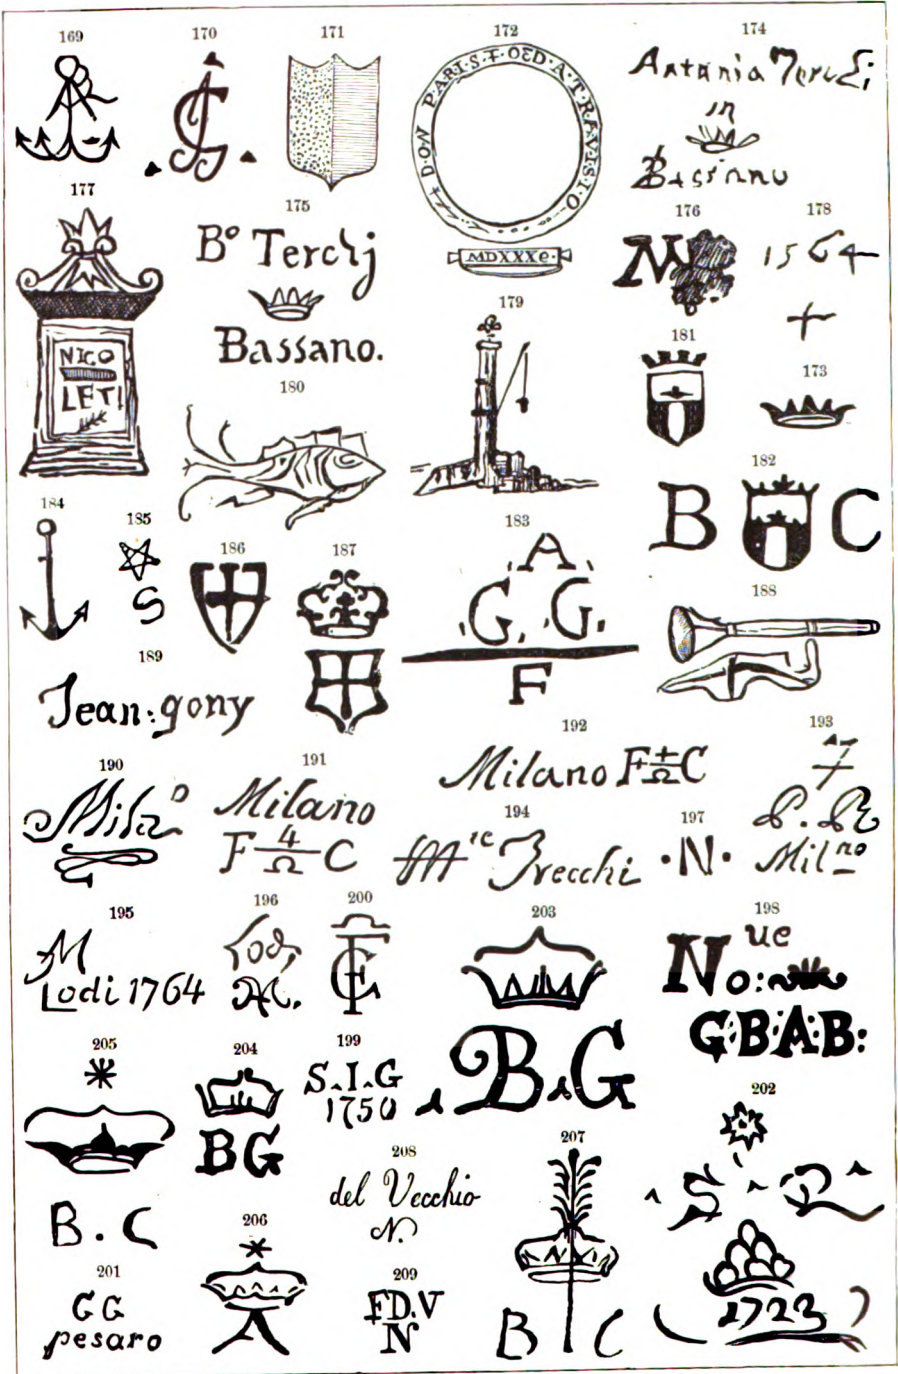 169
170
171
172
174
JG
DON PARIS ‡ OED A TRAVISIO
MDXXXe
Antania Terchi
in
Bassano
177
NICO
LETI
175
Bº Terchj
Bassano.
176
M
178
1564
179
180
181
173
182
B C
184
185
S
186
187
183
A
G. G.
F
188
189
Jean:gony
190
Milaº
191
Milano
F 4 C
Ω
192
Milano F±C
Ω
193
7
P.R
Milno
194
Mte Trecchi
197
·N·
195
M
Lodi 1764
196
Lodi
M.
200
FC
203
B.G
198
Nue
No:
G:B:A:B:
205
B.C
204
BG
199
S.I.G
1750
202
S R
1723
201
GG
pesaro
206
208
del Vecchio
N.
209
FD.V
N
207
B C